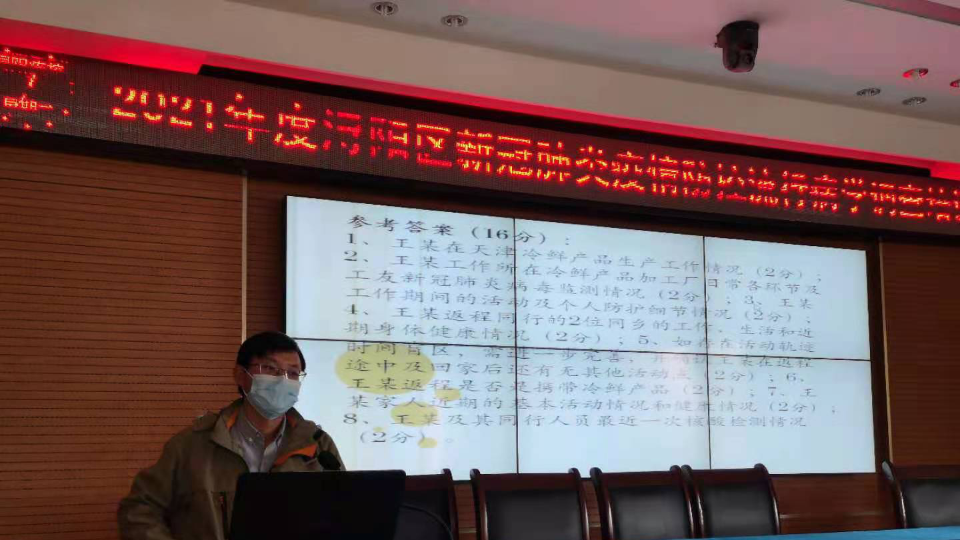 7
星期一
2021年度浔阳区新冠肺炎疫情防控流行病学调查培
参考答案（16分）：
1、王某在天津冷鲜产品生产工作情况（2分）；
2、王某工作所在冷鲜产品加工厂日常各环节及
工友新冠肺炎病毒监测情况（2分）；3、王某
工作期间的活动及个人防护细节情况（2分）；
4、王某返程同行的2位同乡的工作、生活和近
期身体健康情况（2分）；5、如存在活动轨迹
时间盲区，需进一步完善，并确认王某在返程
途中及回家后还有无其他活动点（2分）；6、
王某返程是否是携带冷鲜产品（2分）；7、王
某家人近期的基本活动情况和健康情况（2分）；
8、王某及其同行人员最近一次核酸检测情况
（2分）。